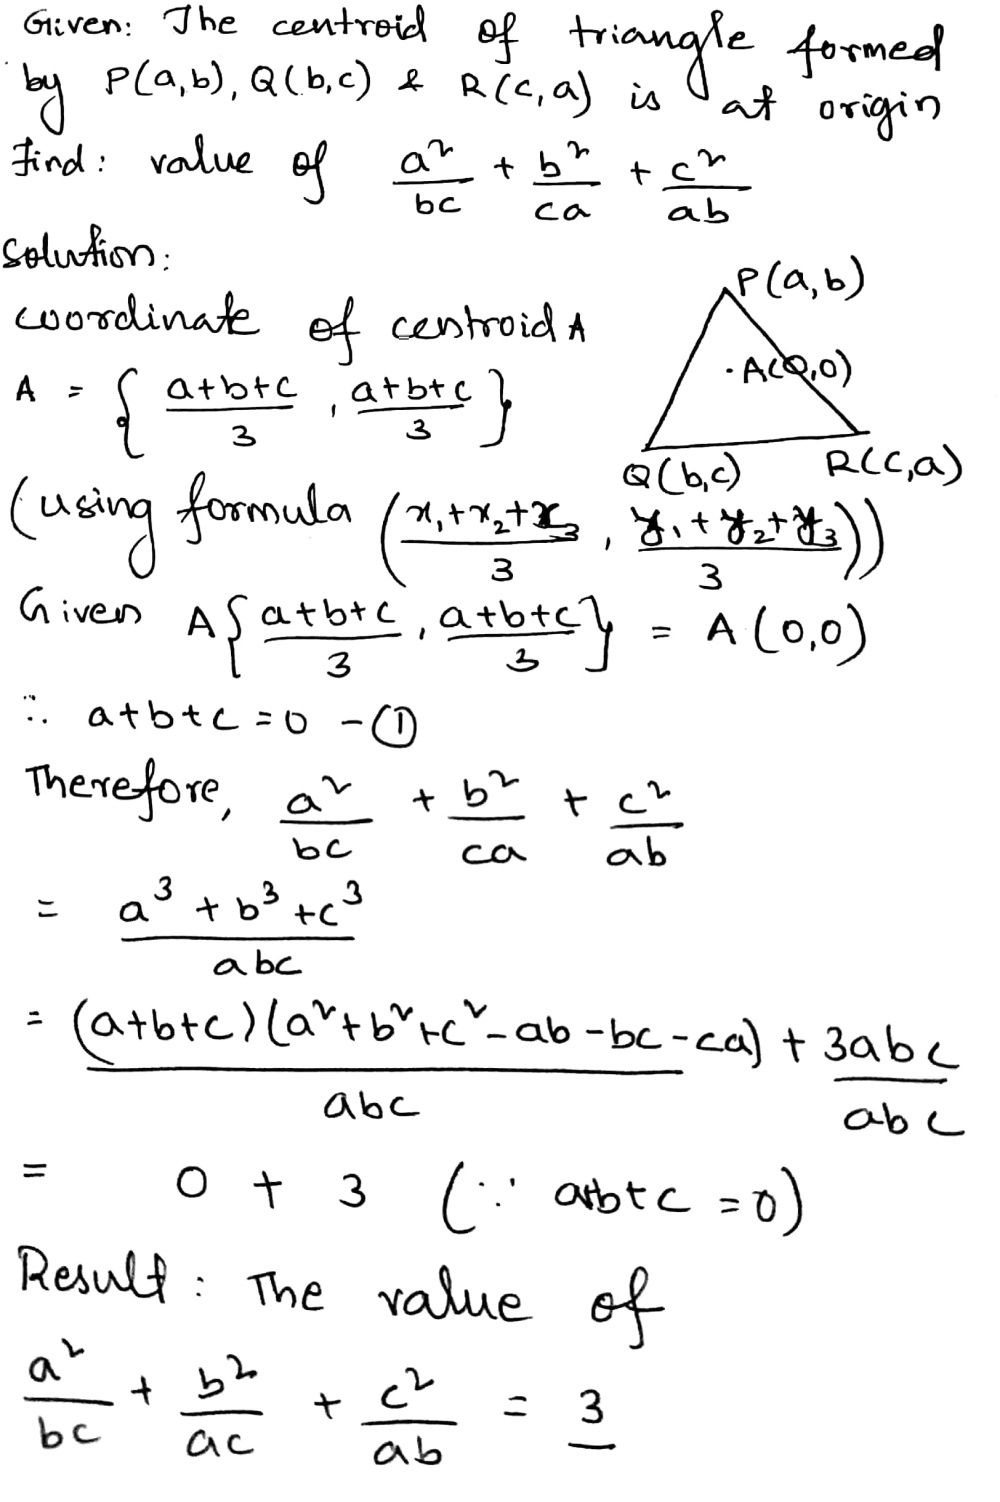 Given: The centroid of triangle formed
by P(a,b), Q(b,c) & R(c,a) is at origin
Find: value of a²/bc + b²/ca + c²/ab
Solution:
coordinate of centroid A
A = { (a+b+c)/3 , (a+b+c)/3 }
P(a,b)
A(0,0)
Q(b,c) R(c,a)
(using formula ((x₁+x₂+x₃)/3 , (y₁+y₂+y₃)/3))
Given A{ (a+b+c)/3 , (a+b+c)/3 } = A(0,0)
∴ a+b+c=0 -①
Therefore, a²/bc + b²/ca + c²/ab
= (a³+b³+c³)/abc
= (a+b+c)(a²+b²+c²-ab-bc-ca)/abc + 3abc/abc
= 0 + 3 (∵ a+b+c=0)
Result: The value of
a²/bc + b²/ac + c²/ab = 3